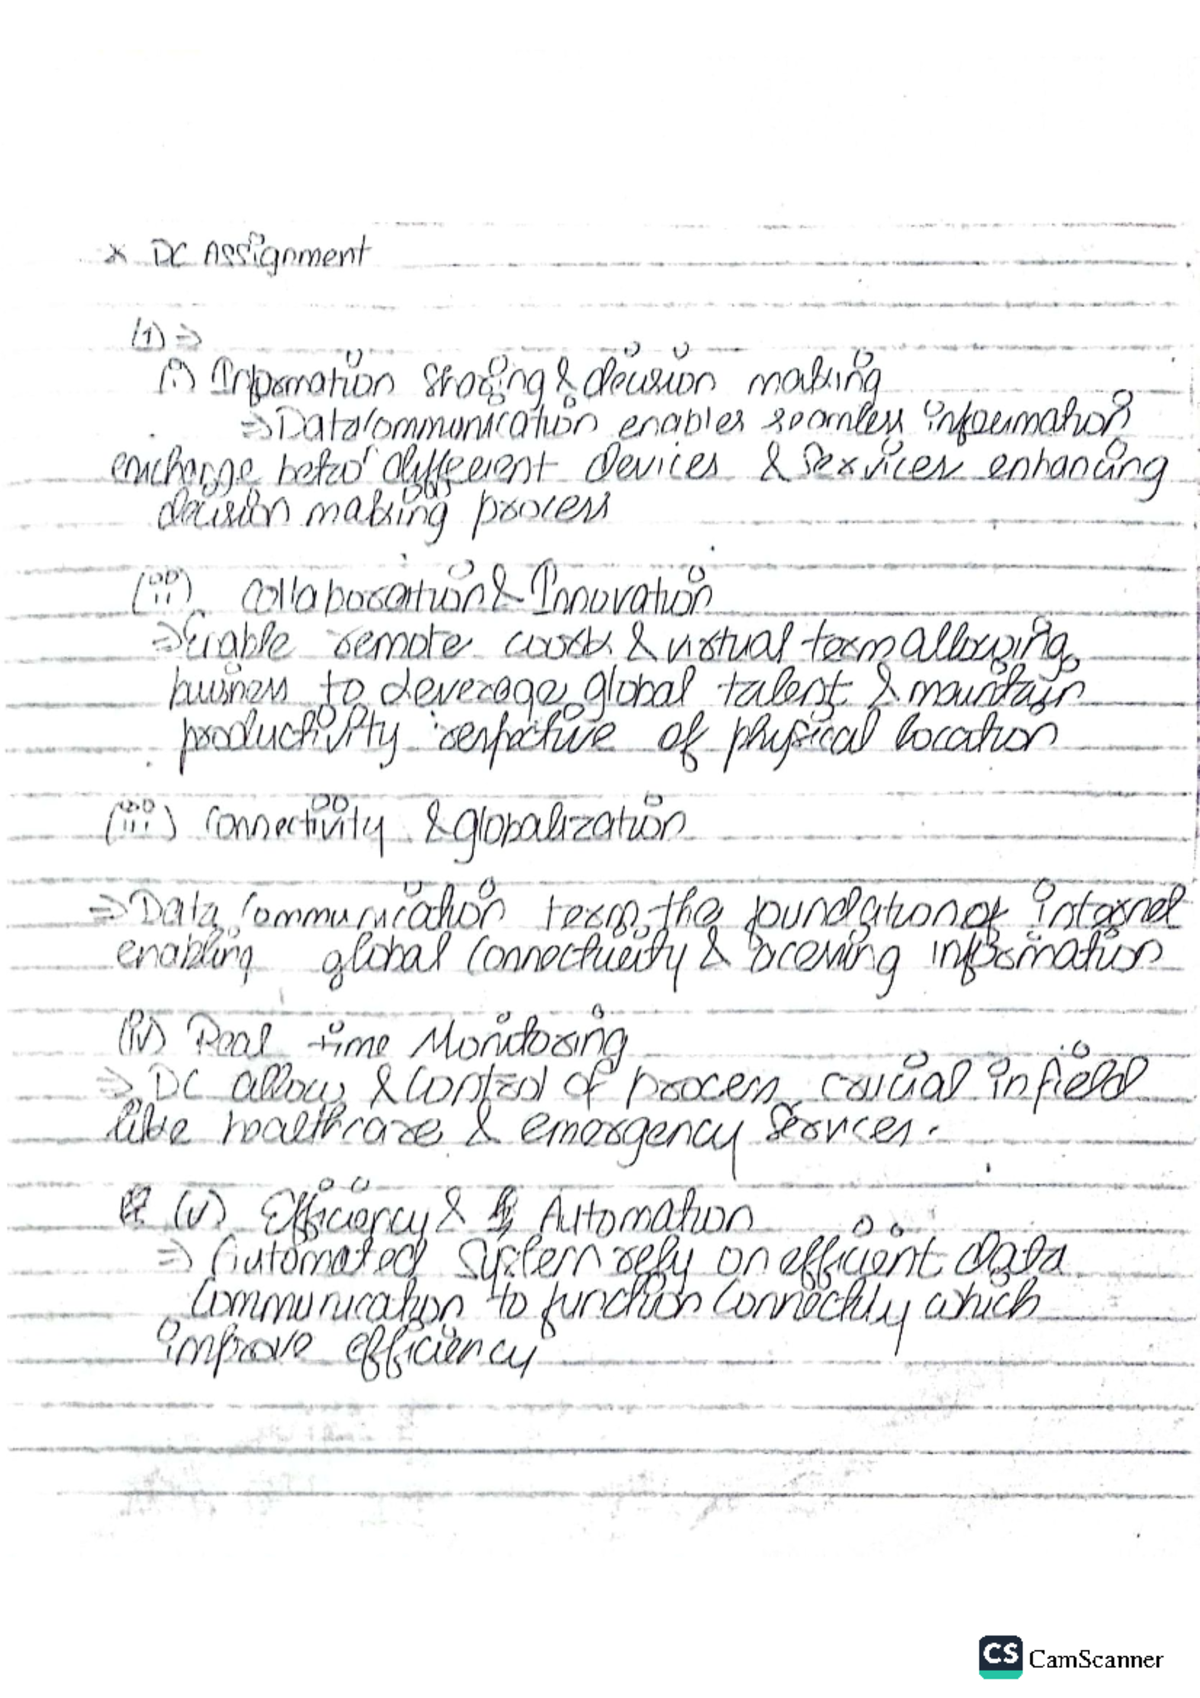 * DC Assignment
(1) ⇒
(i) Information Sharing & decision making
⇒ Data communication enables seamless information
enchange betw different devices & Services enhancing
decision making process
(ii) Collaboration & Innovation
⇒ Enable remote work & virtual team allowing
buisness to leverage global talent & maintain
productivity irrespective of physical location
(iii) Connectivity & globalization
⇒ Data communication the foundation of internet
enabling global connectivity & accessing information
(iv) Real time Monitoring
⇒ DC allow & control of process crucial in field
like healthcare & emergency services.
(v) Efficiency & Automation
⇒ Automated System rely on efficient data
communication to function which
improve efficiency
CS CamScanner